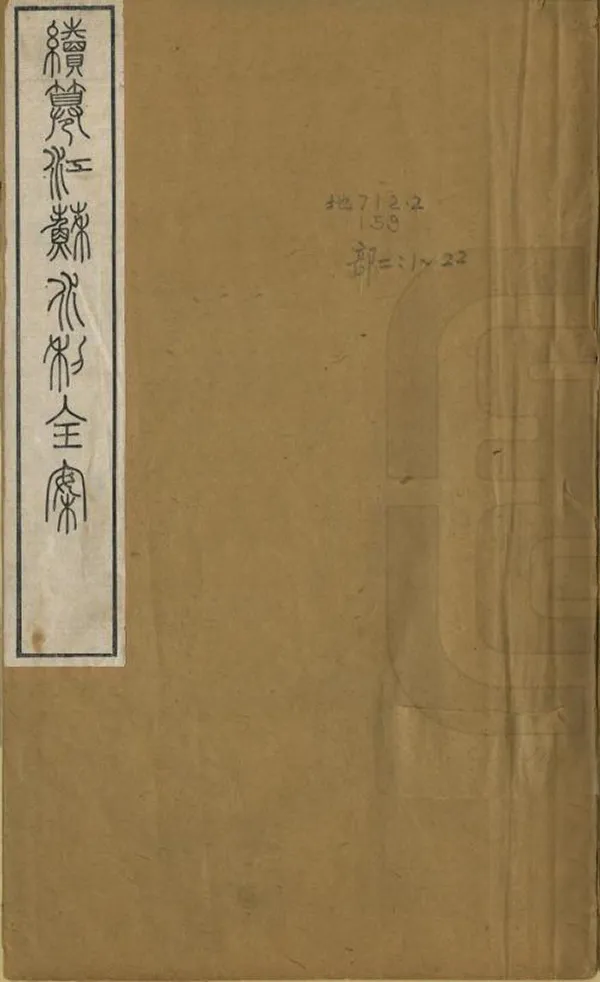 續纂江蘇水利全案
地712.2
159
部二:1~22